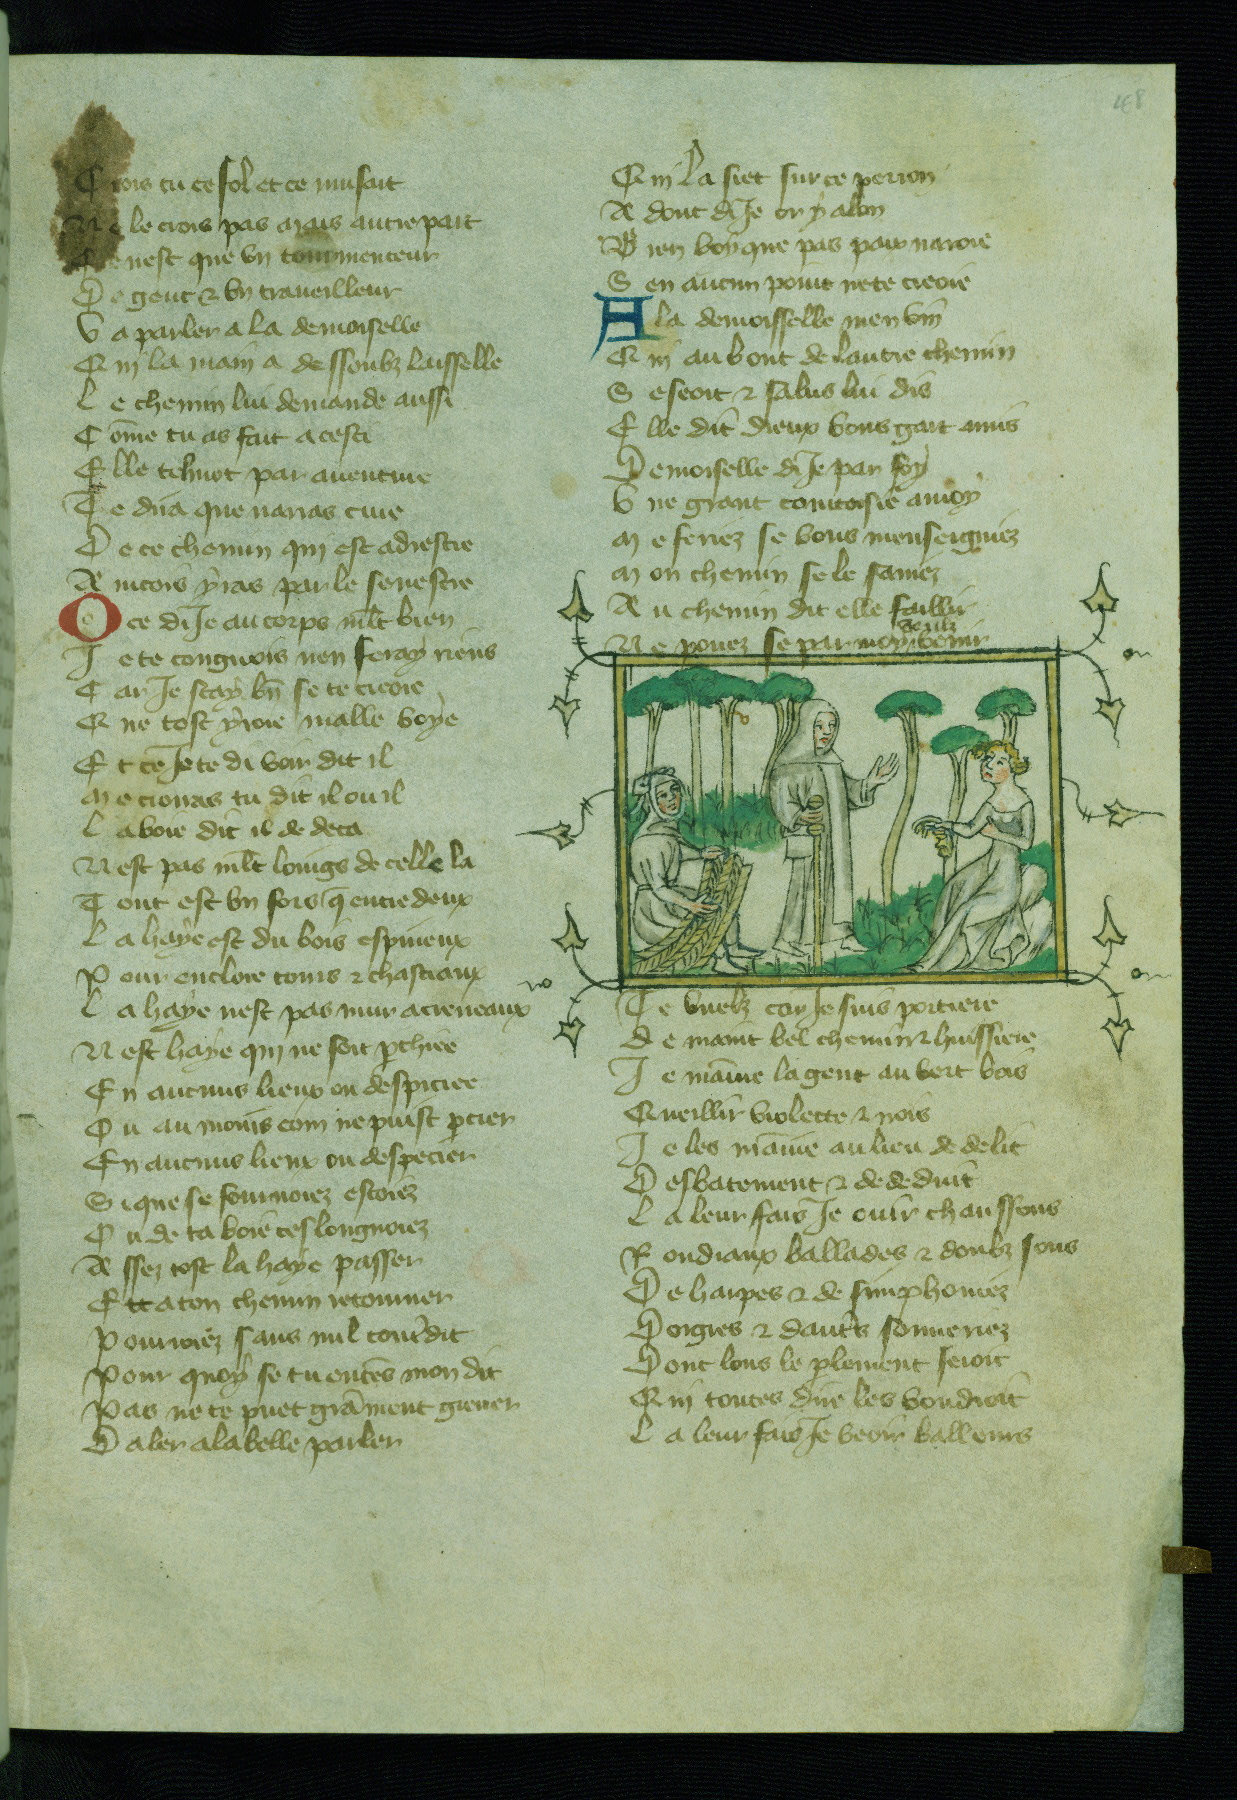 Crois tu ce fol et ce musart
Ne le crois pas mais autre part
Ce nest que vn tourmenteur
De gent & vn traueilleur
Va parler a la demoiselle
Qui la main a dessoubz laisselle
Le chemin lui demande aussi
Cōme tu as fait a cesti
Elle tel mot par auenture
Te dira que naras cure
De ce chemin qui est a destre
Aincois yras par le senestre
O ce di Je au corps mlt bien
Je te congnois nen feray riens
Car Je scay bn̄ se te creoie
Que tost yroie malle voye
Et ce Je te di voir dit il
Me crouras tu dit il ouil
La voie dit il de deca
Nest pas mlt loings de celle la
Tout est vn fors q̄ entre deux
La haye est du bois espineux
Pour enclore tours & chastiaux
La haye nest pas mur a creneaux
Nest haye qui ne soit pchiee
En aucuns lieux ou despiciee
Ou au moins com ne puist pcier
En aucuns lieux ou despecier
Si que se fouruoiez estoies
Ou de ta voie teslongnoiez
Assez tost la haye passer
Et a ton chemin retourner
Pourroiez sans nul contredit
Pour quoy se tu entēs mon dit
Pas ne te puet grāment greuer
Daler a la belle parler
Qui la siet sur ce perron
A dont di Je or y alon
Bien voy que pas paix naroie
Sen aucun point ne te creoie
A la demoisselle men vin
Qui au bout de lautre chemin
Se seoit & salus lui dis
Elle dit dieux vous gart amis
Demoiselle di Je par foy
Vne grant courtoisie a moy
Me feriez se vous menseigniez
Mon chemin se le sauiez
Au chemin dit elle faillir
Ne pouez se par moy voulz venir
Te vuelz car Je suis portiere
De maint bel chemin & huissiere
Je māine la gent au vert bois
Queillir violette & nois
Je les māine au lieu de delit
Desbatement & de deduit
La leur fais Je ouir chanssons
Rondiaux ballades & doulz sons
De harpes & de simphoniez
Dorgres & dautrs sonneriez
Dont lons le plement seroit
Qui toutes dire les voudroit
La leur fais Je veoir balleurs